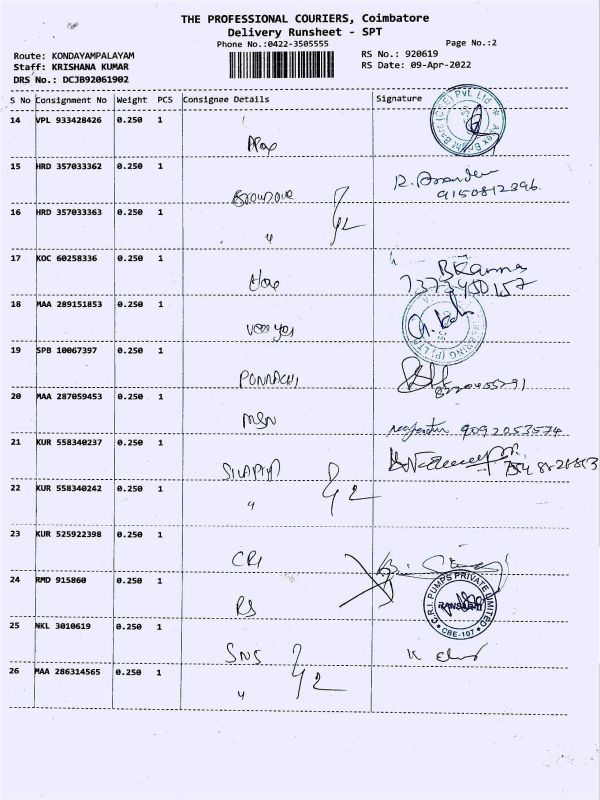 THE PROFESSIONAL COURIERS, Coimbatore
Delivery Runsheet - SPT
Phone No.:0422-3505555
Page No.:2
Route: KONDAYAMPALAYAM
RS No.: 920619
Staff: KRISHANA KUMAR
RS Date: 09-Apr-2022
DRS No.: DCJB92061902
S No Consignment No Weight PCS Consignee Details Signature
14 VPL 933428426 0.250 1
15 HRD 357033362 0.250 1
9150812396
16 HRD 357033363 0.250 1
17 KOC 60258336 0.250 1
7373450157
18 MAA 289151853 0.250 1
19 SPB 10067397 0.250 1
20 MAA 287059453 0.250 1
MSN 9092053574
21 KUR 558340237 0.250 1
22 KUR 558340242 0.250 1
23 KUR 525922398 0.250 1
CRI
24 RMD 915860 0.250 1
RS
C.R.I. PUMPS PRIVATE LIMITED
CBE-107
25 NKL 3010619 0.250 1
SNS
26 MAA 286314565 0.250 1